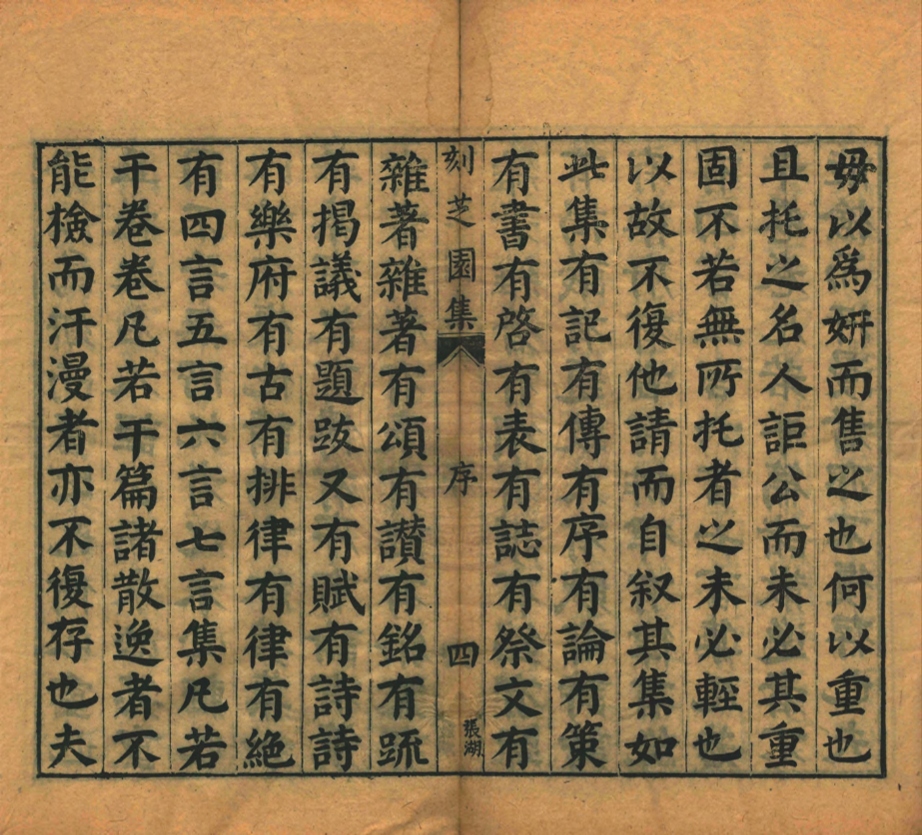 毋以爲姸而售之也何以重也
且托之名人詎公而未必其重
固不若無所托者之未必輕也
以故不復他請而自叙其集如
此集有記有傳有序有論有策
有書有啓有表有誌有祭文有
刻芝園集 序 四 張湖
雜著雜著有頌有讃有銘有䟽
有揭議有題跋又有賦有詩詩
有樂府有古有排律有律有絶
有四言五言六言七言集凡若
干卷卷凡若干篇諸散逸者不
能檢而汗漫者亦不復存也夫